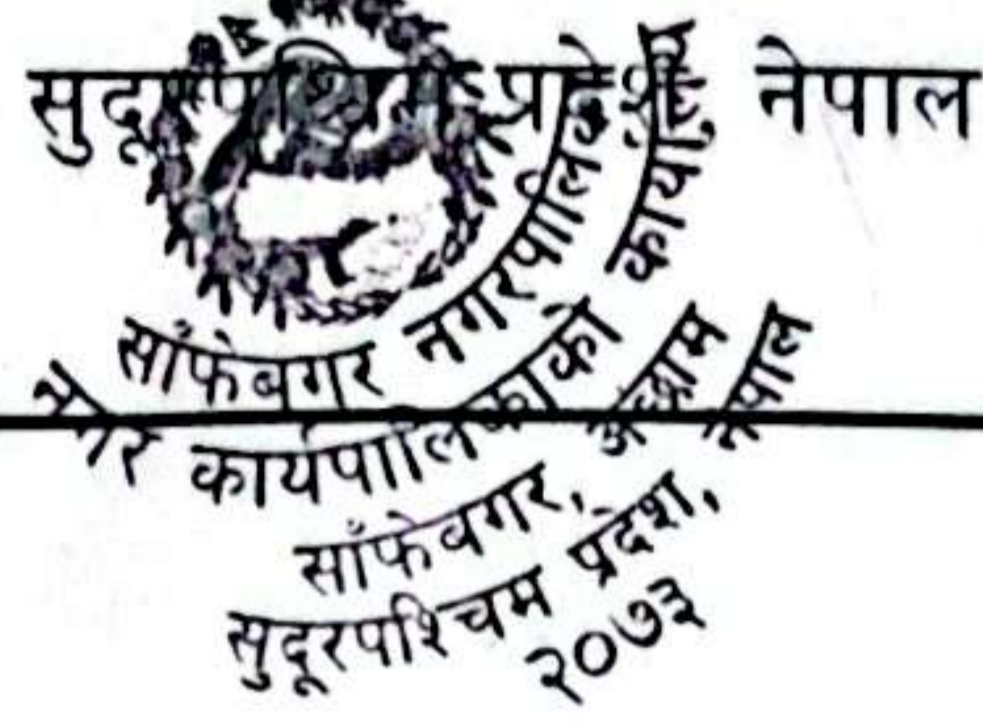 सुदूरपश्चिम प्रदेश, नेपाल
साँफेबगर नगरपालिका
नगर कार्यपालिकाको कार्यालय
साँफेबगर, अछाम
सुदूरपश्चिम प्रदेश, नेपाल
२०७३